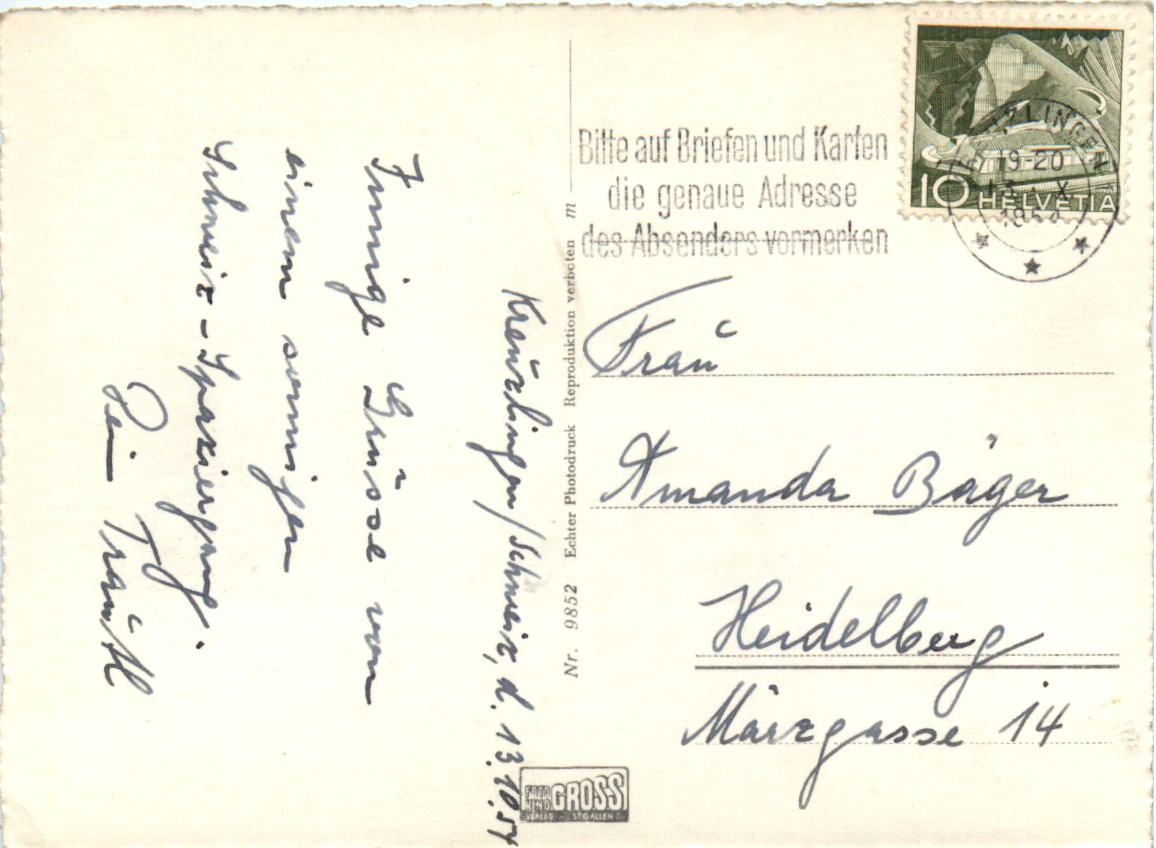 Kreuzlingen/Schweiz, d. 13.10.54
Innige Grüsse von
einem sonnigen
Schweiz-Spaziergang.
Dein Traudl
Nr. 9852 Echter Photodruck Reproduktion verboten m
Bitte auf Briefen und Karten
die genaue Adresse
des Absenders vormerken
19-20
13. X.
1954
10 HELVETIA
Frau
Amanda Bäger
Heidelberg
Märzgasse 14
FOTO
KINO GROSS
VERLAG - ST.GALLEN